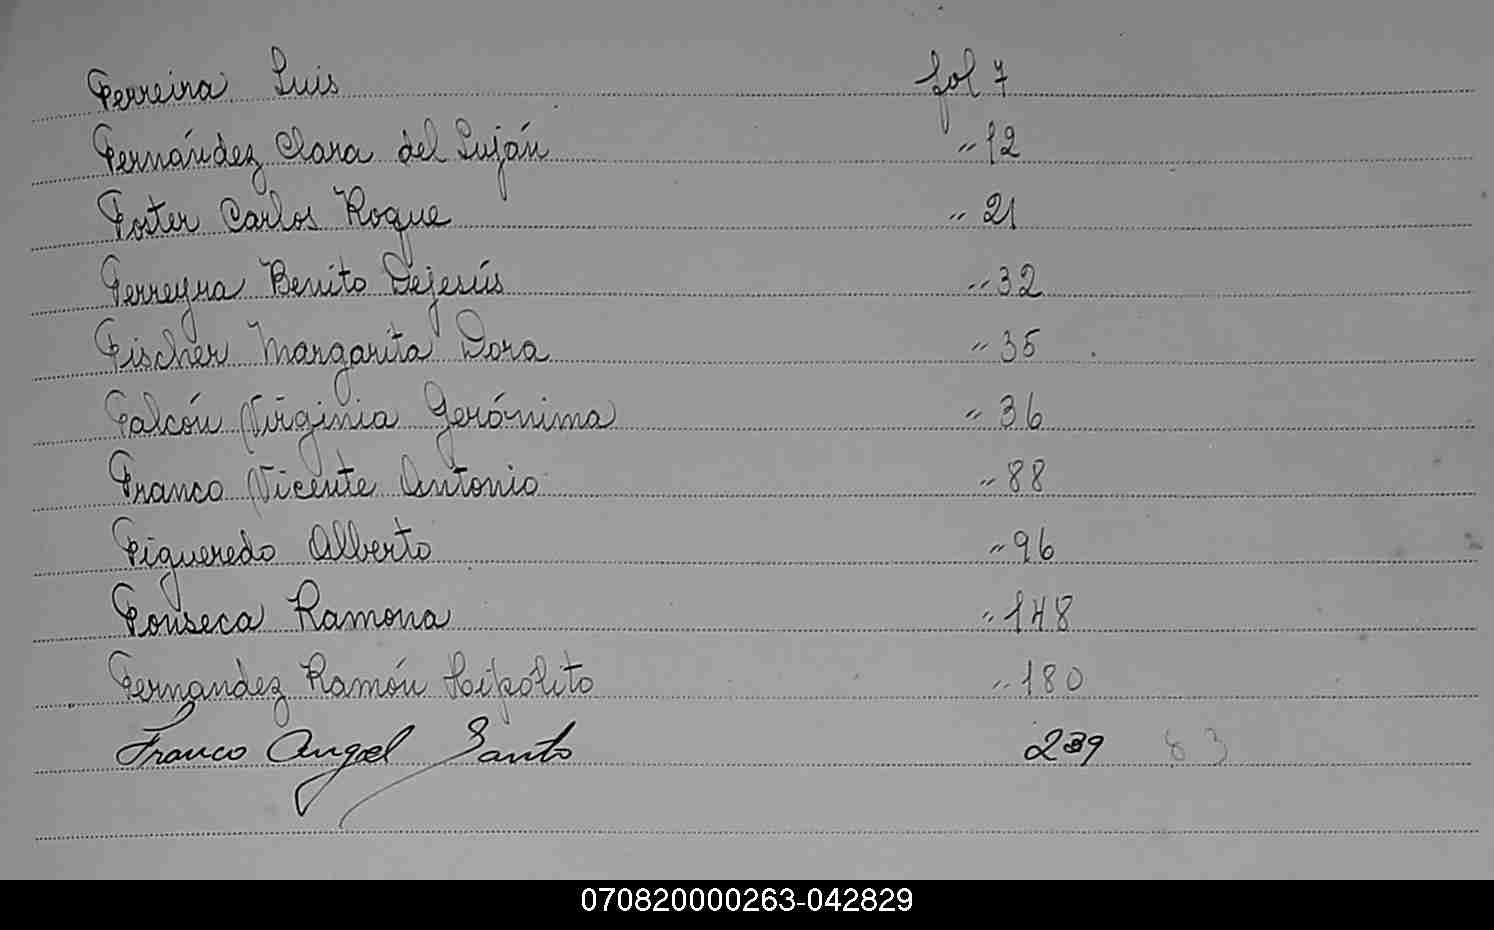 Ferreira Luis fol 7
Fernández Clara del Luján " 12
Foster Carlos Roque " 21
Ferreyra Benito Dejesús " 32
Fischer Margarita Dora " 35
Falcón Virginia Gerónima " 36
Franco Vicente Antonio " 88
Figueredo Alberto " 96
Fonseca Ramona " 148
Fernandez Ramón Hipólito " 180
Franco Angel Santo 239 83
070820000263-042829